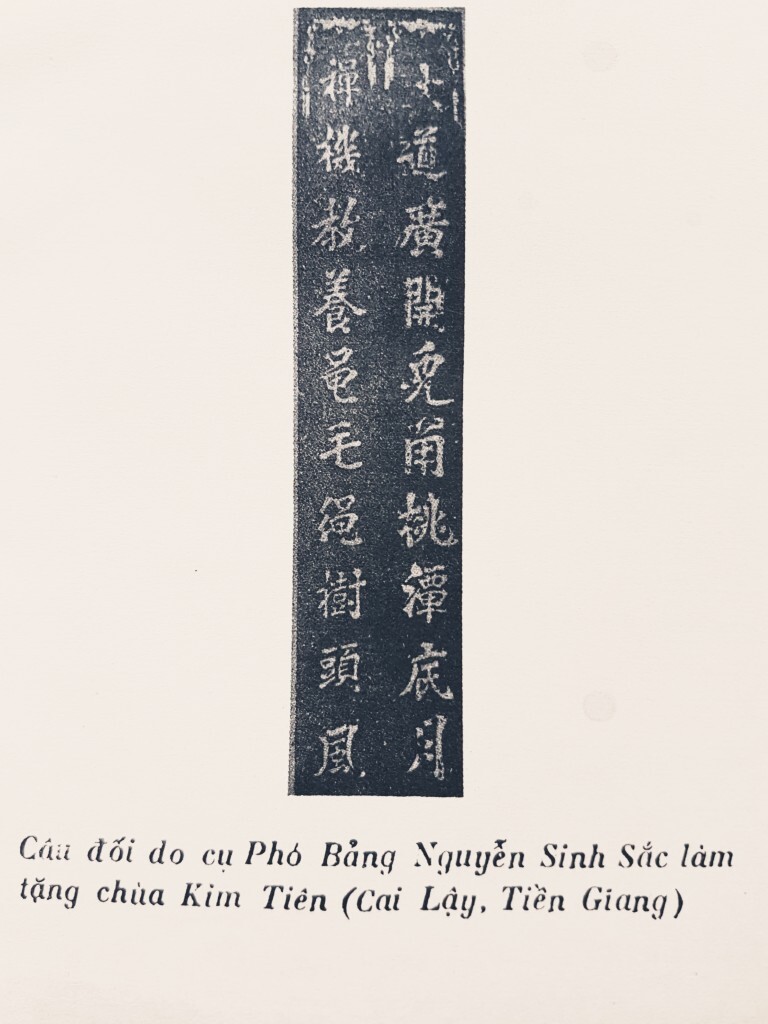 道廣開兔桃潭底月
禪機教養毛繩樹頭風
Câu đối do cụ Phó Bảng Nguyễn Sinh Sắc làm
tặng chùa Kim Tiên (Cai Lậy, Tiền Giang)